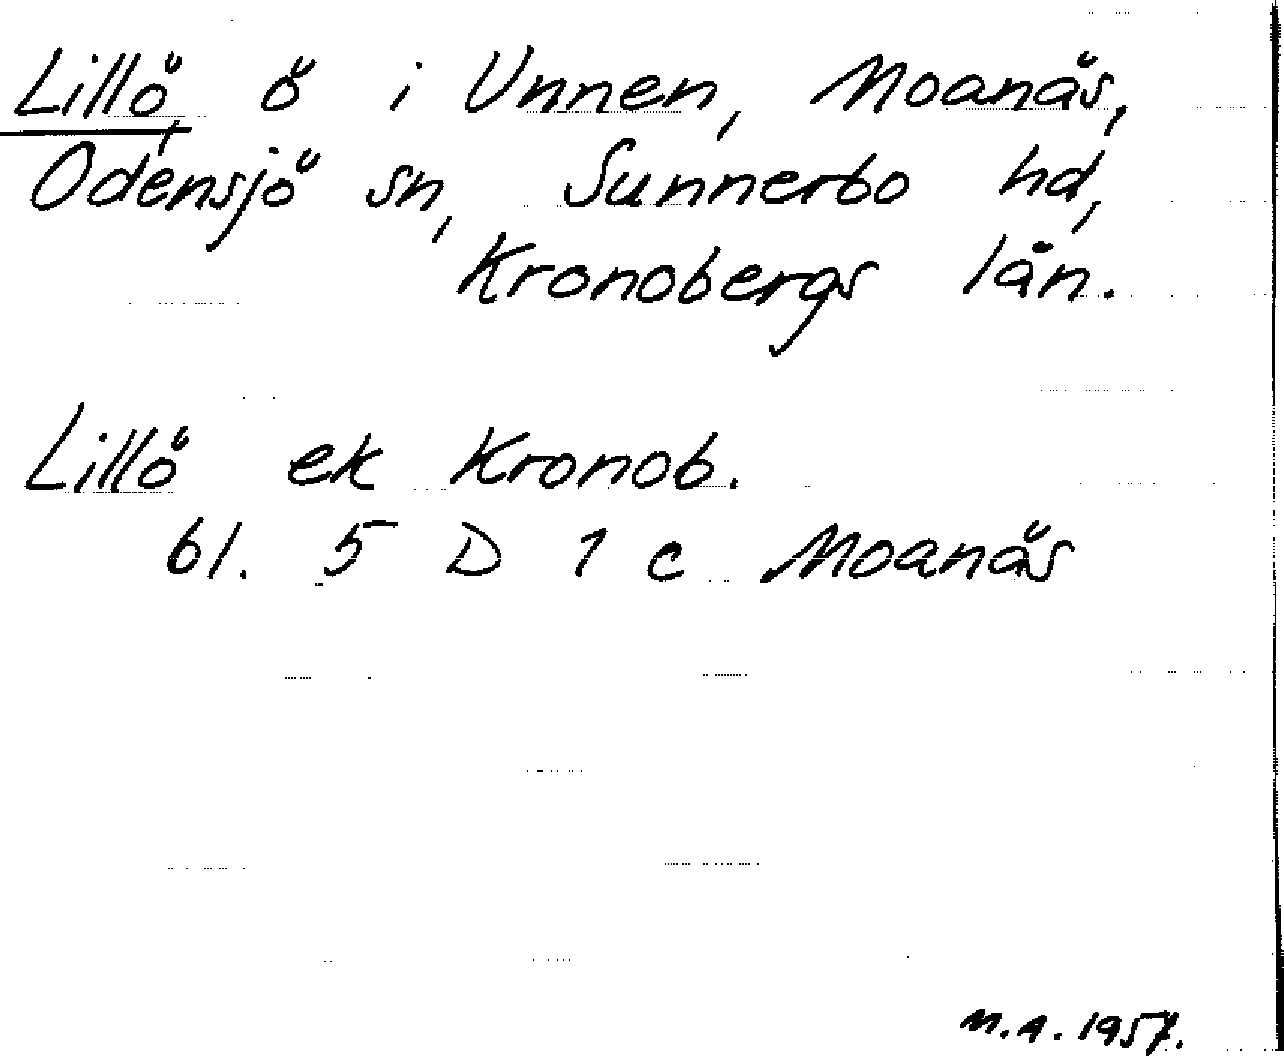 Lillö, ö i Unnen, Moanäs,
Odensjö sn, Sunnerbo hd,
Kronobergs län.
Lillö ek Kronob.
bl. 5 D 1 c Moanäs
M.A. 1957.